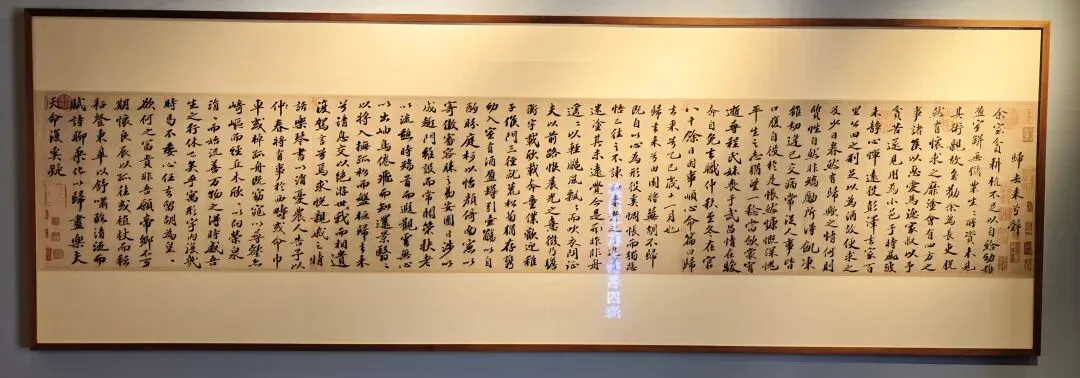 歸去來兮辭
余家貧耕植不足以自給幼稚
盈室缾無儲粟生生所資未見
其術親故多勸余為長吏脫
然有懷求之靡途會有四方之
事諸侯以惠愛為德家叔以予
貧苦遂見用為小邑于時風波
未靜心憚遠役彭澤去家百
里公田之利足以為酒故便求之
及少日眷然有歸歟之情何則
質性自然非矯勵所得飢凍
雖切違已交病嘗從人事皆
口腹自役於是悵然慷慨深愧
平生之志猶望一稔當斂裳宵
逝尋程氏妹喪于武昌情在駿
奔自免去職仲秋至冬在官
八十餘日因事順心命篇曰歸
去來兮乙巳歲十一月也
歸去來兮田園將蕪胡不歸
既自以心為形役奚惆悵而獨悲
悟已往之不諫知來者之可追實
迷途其未遠覺今是而昨非舟
遙遙以輕颺風飄飄而吹衣問征
夫以前路恨晨光之熹微乃瞻
衡宇載欣載奔童僕歡迎稚
子候門三徑就荒松菊猶存攜
幼入室有酒盈罇引壺觴以自
酌眄庭柯以怡顏倚南窗以
寄傲審容膝之易安園日涉以
成趣門雖設而常關策扶老
以流憩時矯首而遐觀雲無心
以出岫鳥倦飛而知還景翳翳
以將入撫孤松而盤桓歸去來
兮請息交以絕游世與我而相遺
復駕言兮焉求悅親戚之情
話樂琴書以消憂農人告予以
仲春將有事於西疇或命巾
車或棹孤舟既窈窕以尋壑亦
崎嶇而經丘木欣欣以向榮泉
涓涓而始流善萬物之得時感吾
生之行休已矣乎寓形宇內復幾
時曷不委心任去留胡為皇皇
欲何之富貴非吾願帝鄉不可
期懷良辰以孤往或植杖而耘
耔登東皋以舒嘯臨清流而
賦詩聊乘化以歸盡樂夫
天命復奚疑